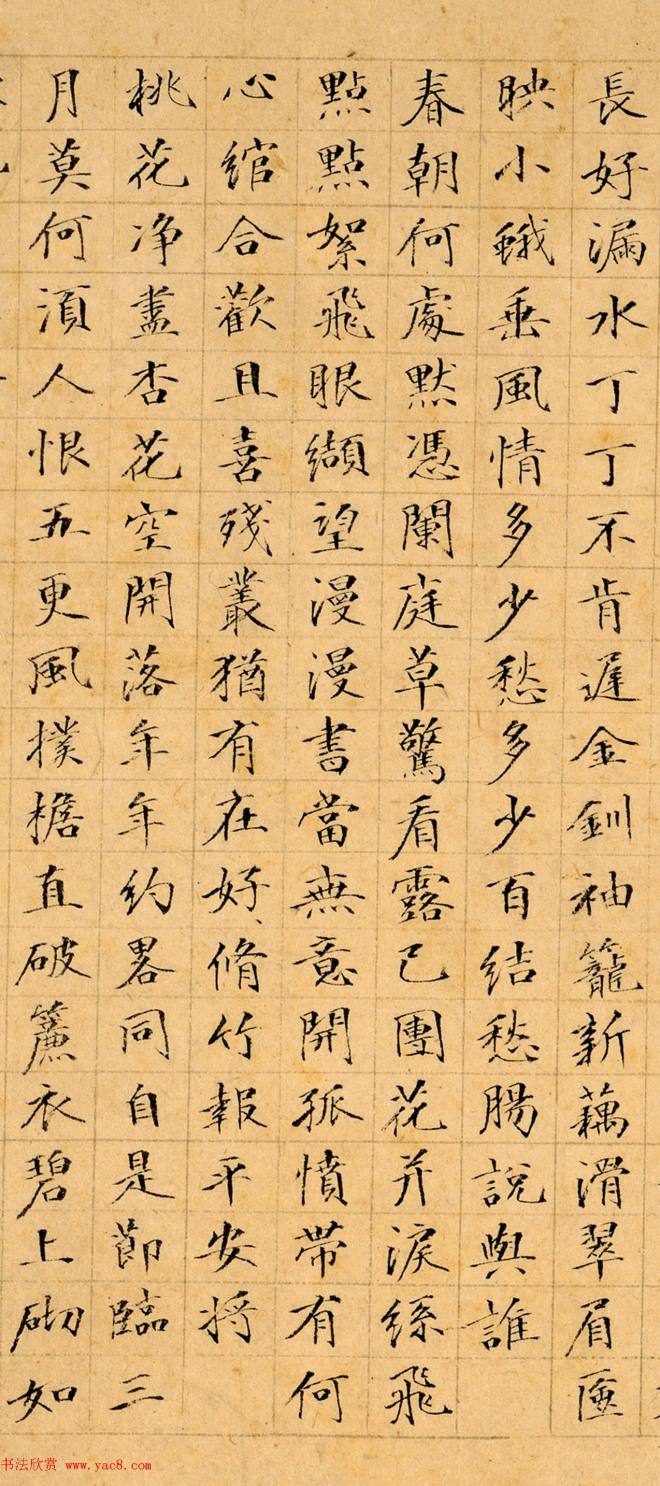 長好漏水丁丁不肯遲金釧袖籠新藕滑翠眉匳
映小蛾垂風情多少愁多少百结愁腸説與誰
春朝何處黙憑闌庭草驚看露已團花并淚絲飛
點點絮飛眼纈望漫漫書當無意開孤憤帶有何
心綰合歡且喜殘叢猶有在好脩竹報平安将
桃花净盡杏花空開落年年約畧同自是節臨三
月莫何須人恨五更風撲檐直破簾衣碧上砌如
书法欣赏 www.yac8.com